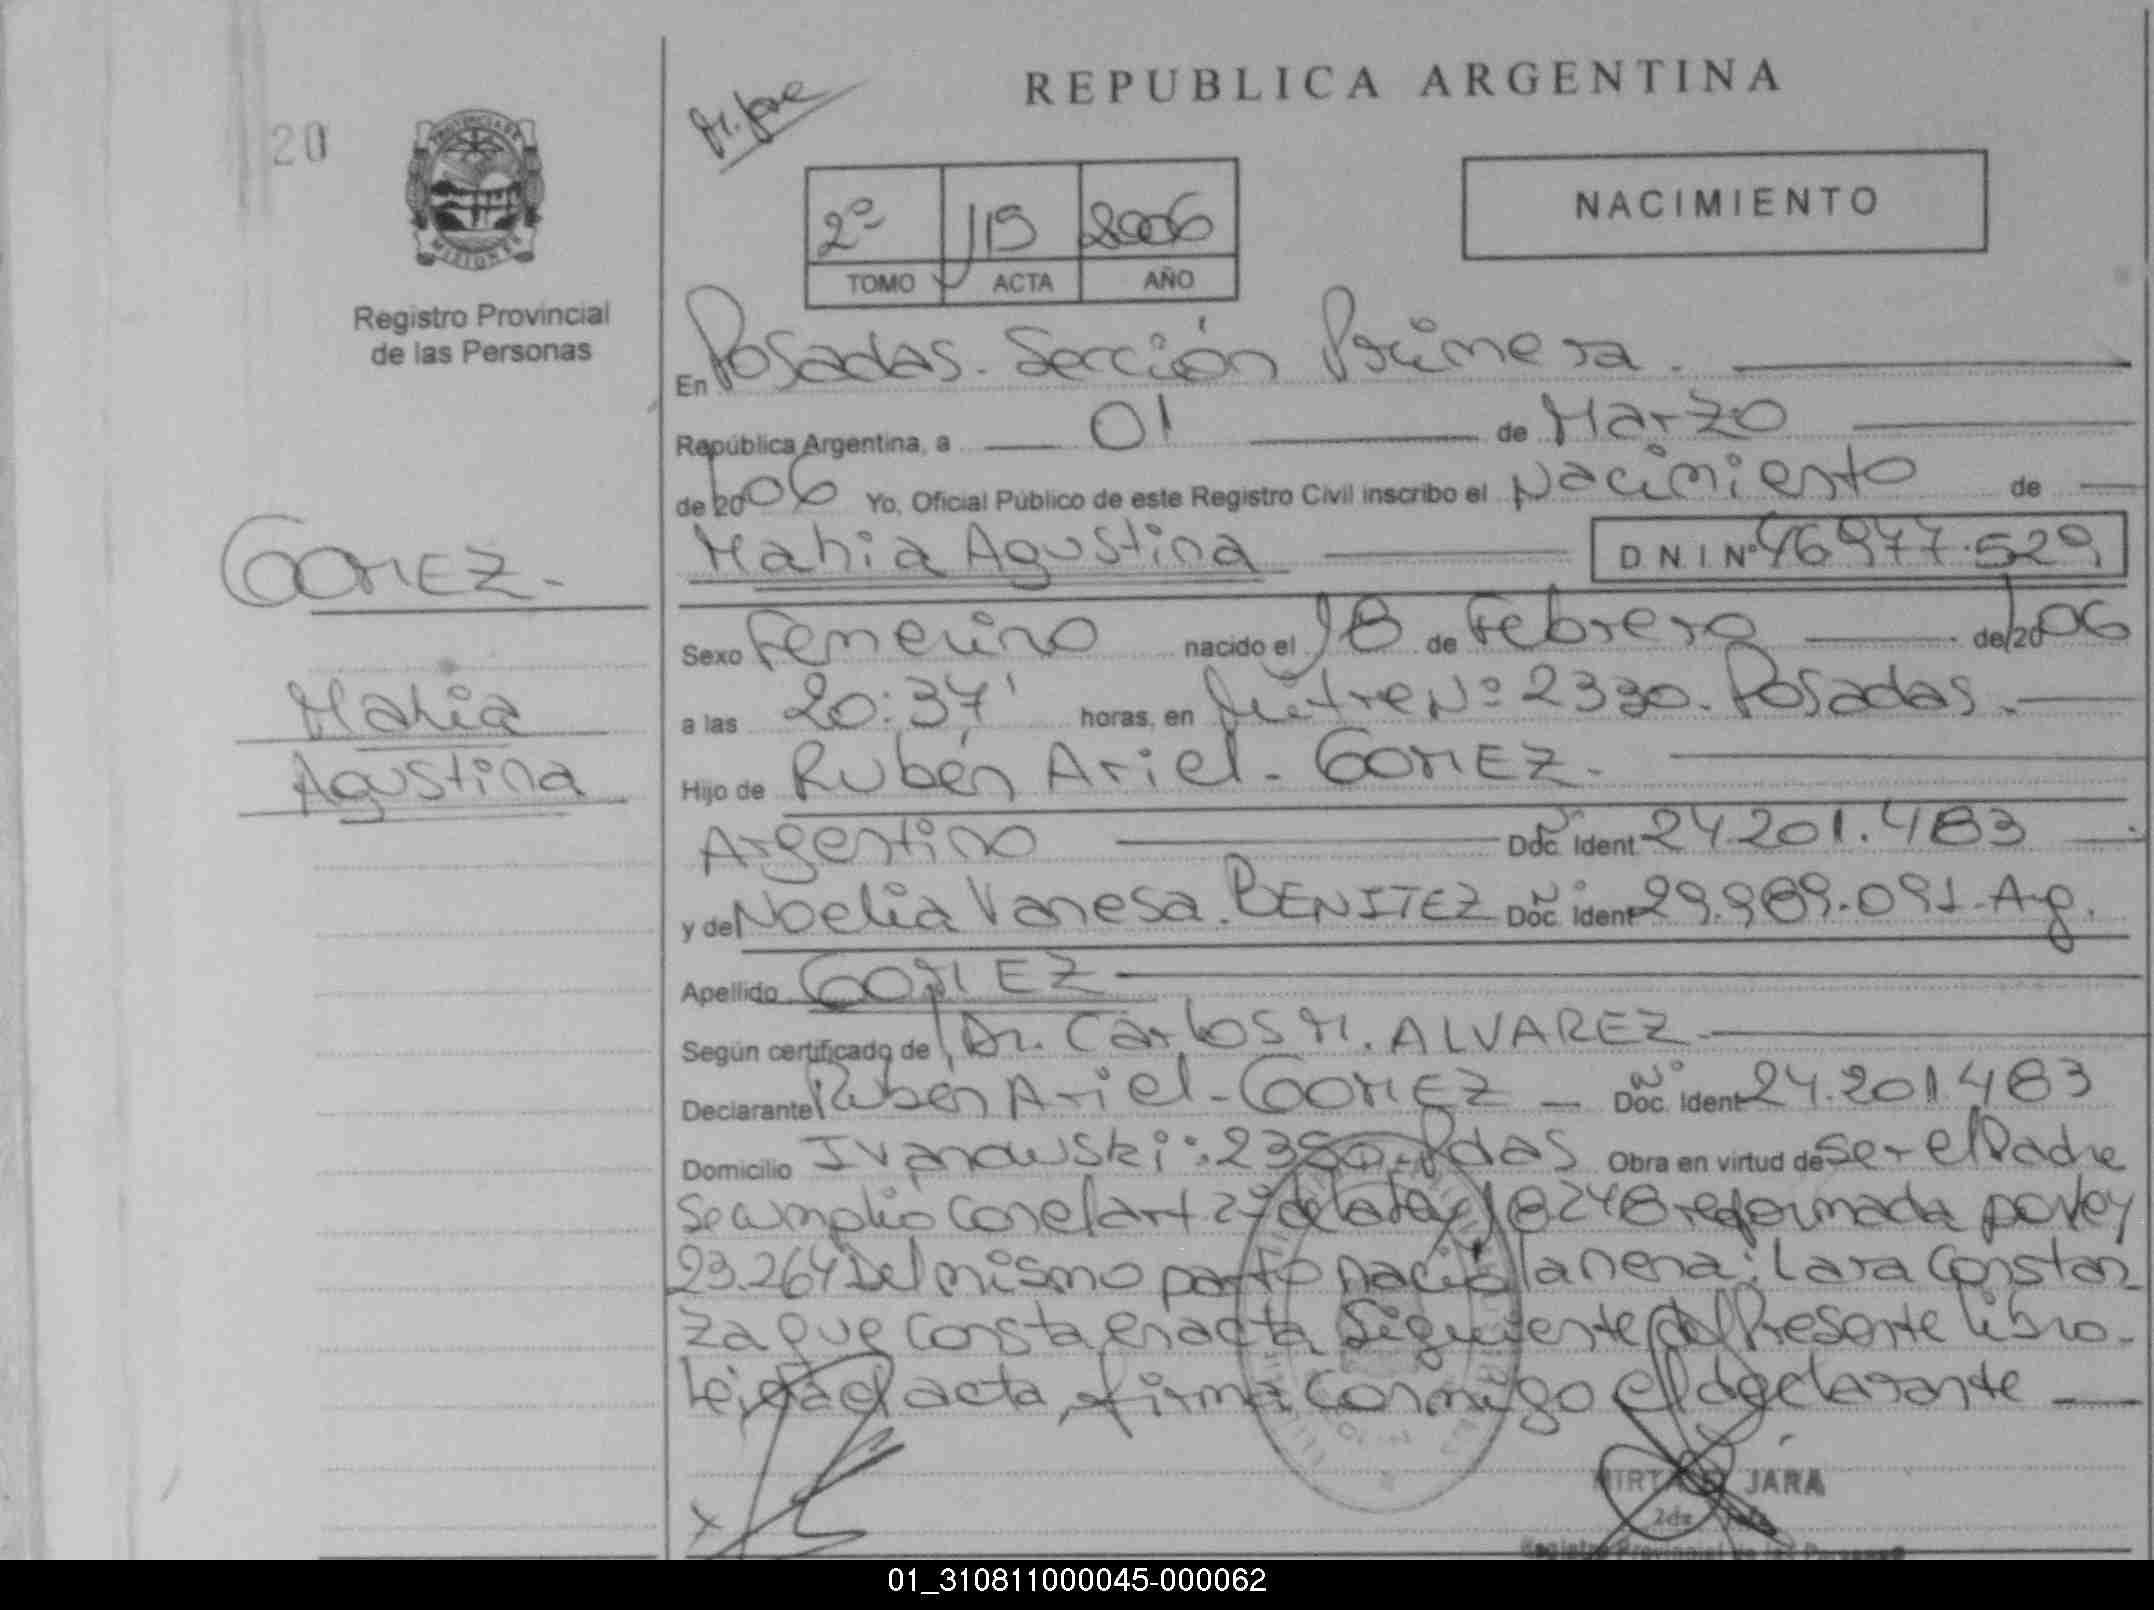 REPUBLICA ARGENTINA
20
PROVINCIA DE
MISIONES
Registro Provincial
de las Personas
2º 119 2006
TOMO ACTA AÑO
NACIMIENTO
En Posadas. Sección Primera.
República Argentina, a 01 de Marzo
de 2006 Yo, Oficial Público de este Registro Civil inscribo el Nacimiento de
GOMEZ.-
Mahia Agustina D N I Nº 46977.529
Sexo Femenino nacido el 18 de Febrero de 2006
Mahia
a las 20:37' horas, en Mitre Nº 2330. Posadas.
Agustina
Hijo de Rubén Ariel - GOMEZ.
Argentino Doc. Ident Nº 24.201.483
y de Noelia Vanesa. BENITEZ Doc. Ident Nº 29.989.091. Ag.
Apellido GOMEZ
Según certificado de Dr. Carlos M. ALVAREZ
Declarante Rubén Ariel - GOMEZ Doc. Ident Nº 24.201483
Domicilio Ivanowski: Pdas Obra en virtud de ser el Padre
Se cumplió con el art 2º de la ley 18248 reformada por ley
23.264 Del mismo parto nació la nena: Lara Constan
za que consta en acta Siguiente del Presente libro.
Leida el acta, firma conmigo el declarante
JARA
Registro Provincial de las Personas
01_310811000045-000062